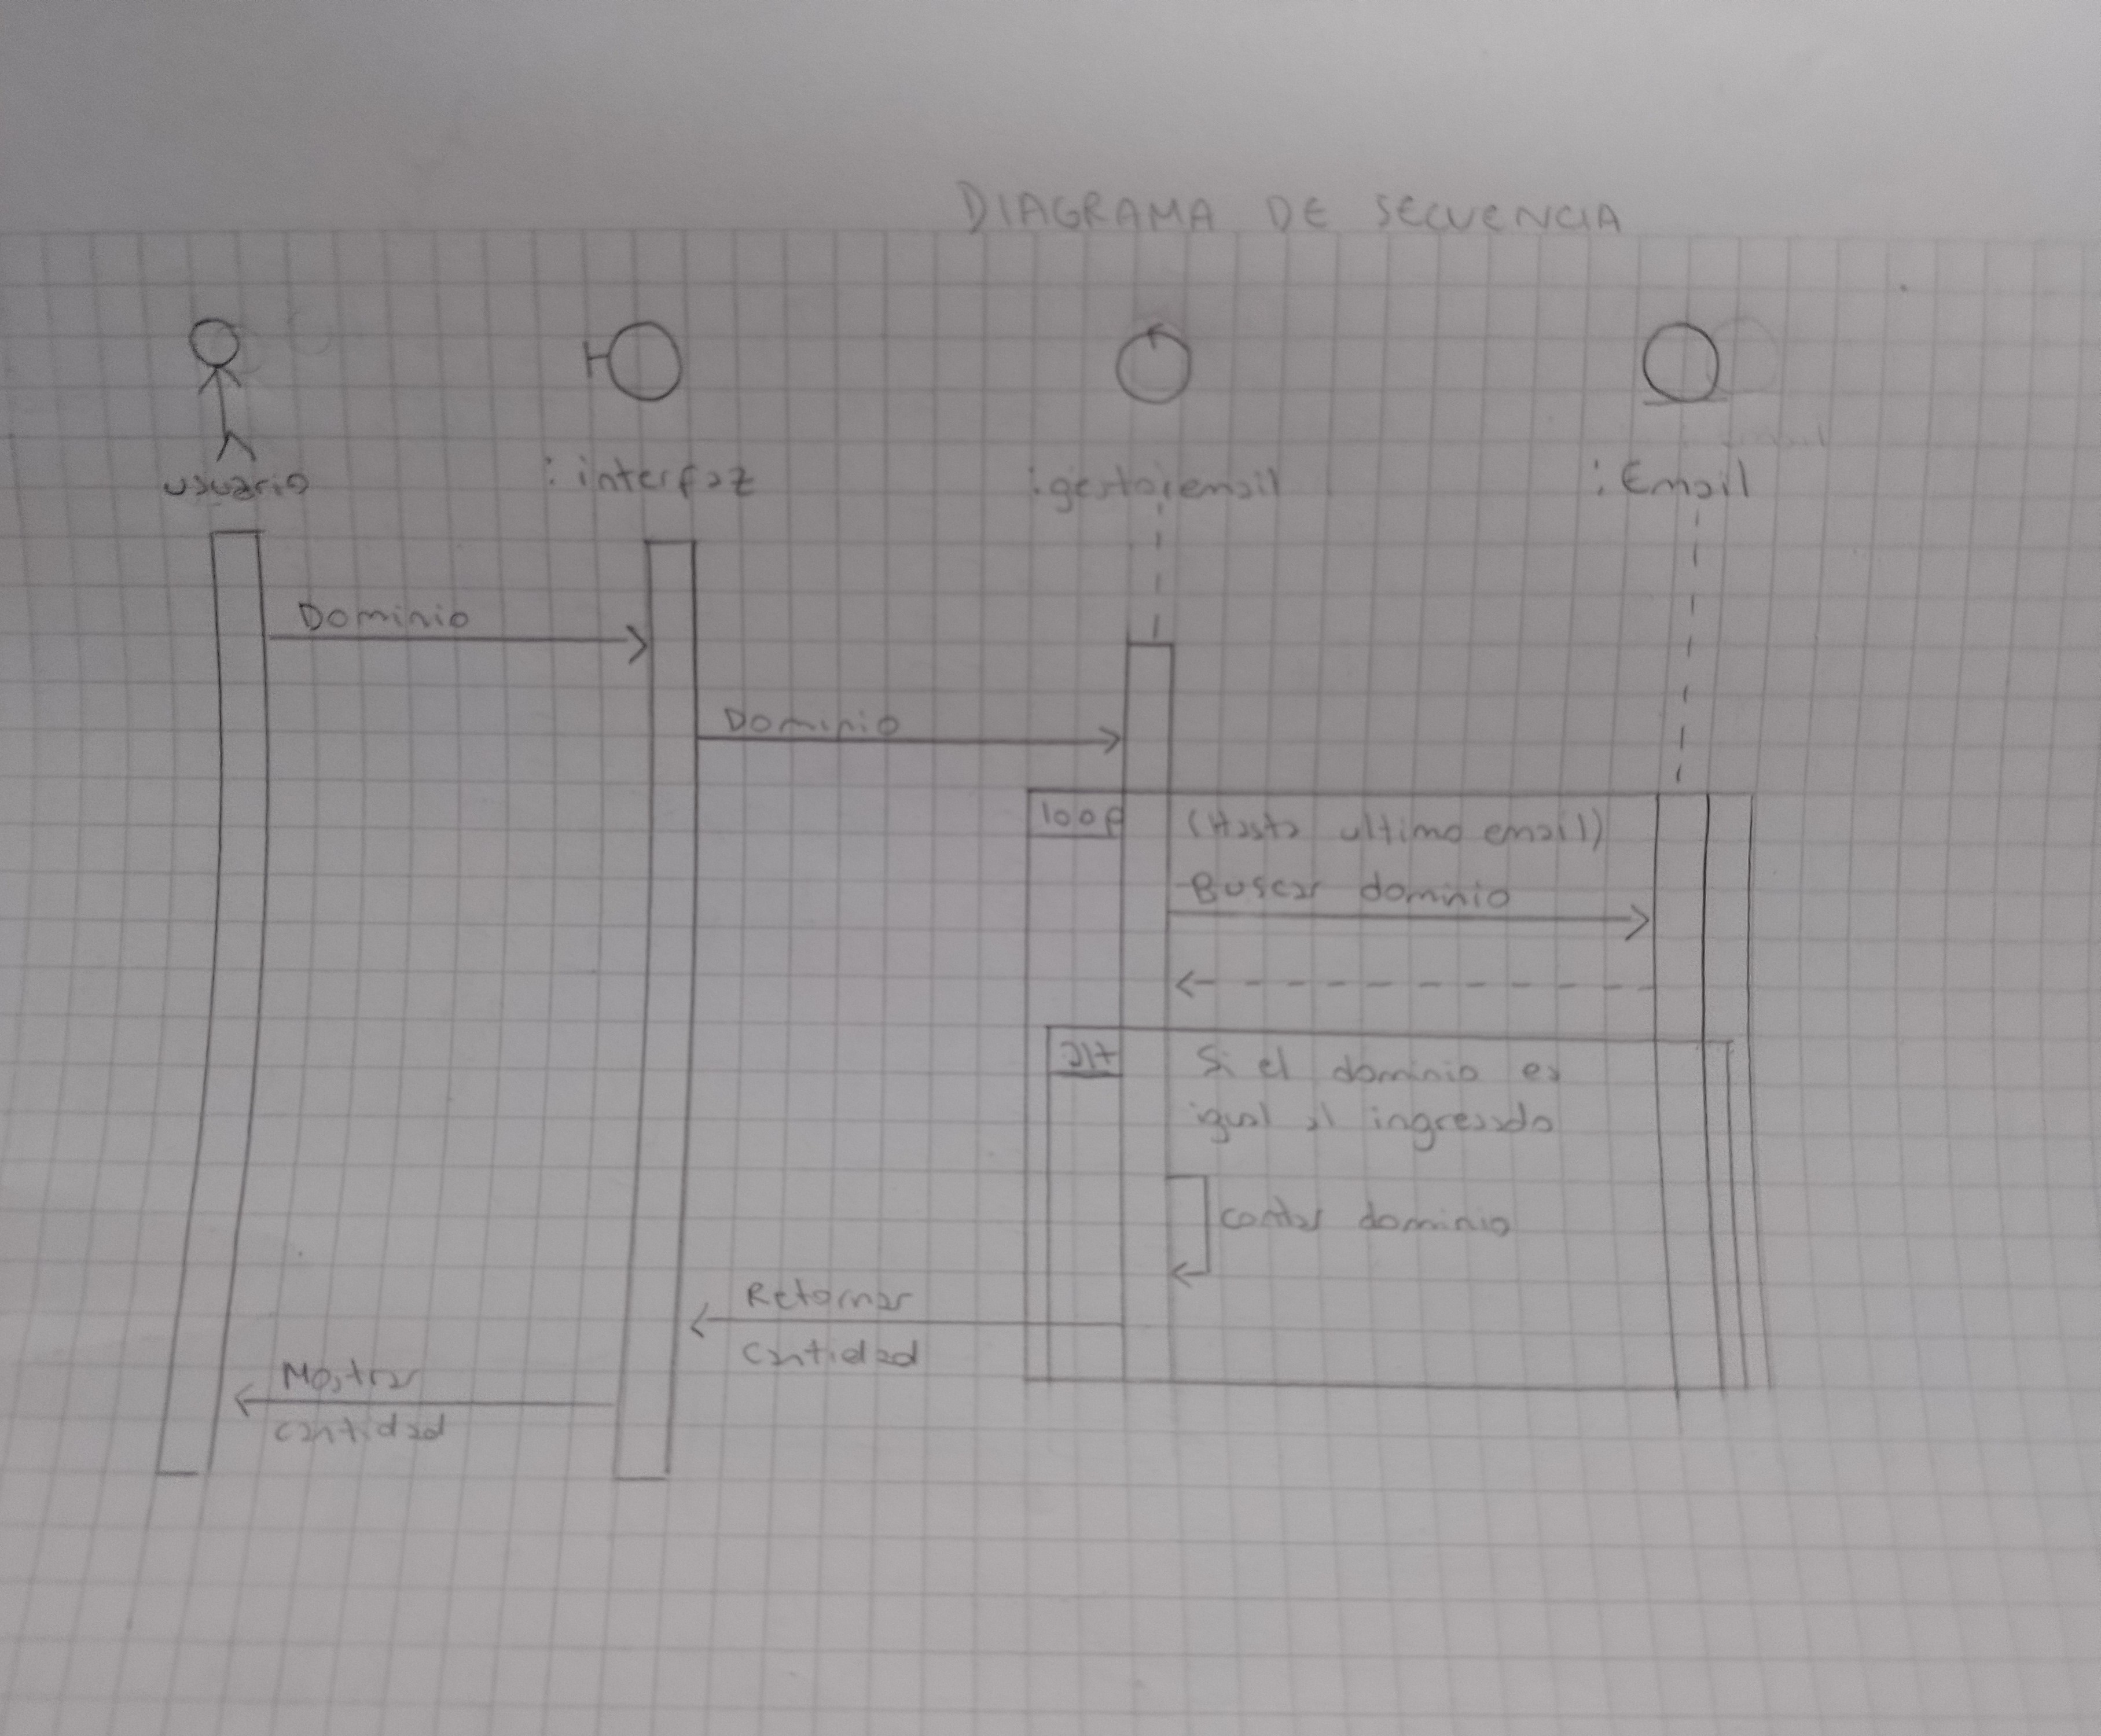 DIAGRAMA DE SECUENCIA
usuario
: interfaz
:gestoremail
: Email
Dominio
Dominio
loop
(Hasta ultimo email)
Buscar dominio
alt
Si el dominio es
igual al ingresado
contar dominio
Retornar
cantidad
Mostrar
cantidad